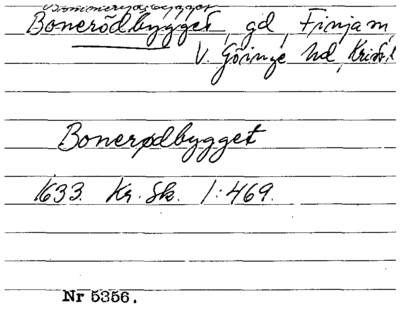 Bonerödbygget, gd, Finja sn,
V. Göinge hd, Krist. l
Bonerødbygget
1633. Kr. Sk. 1:469.
Nr 5356.